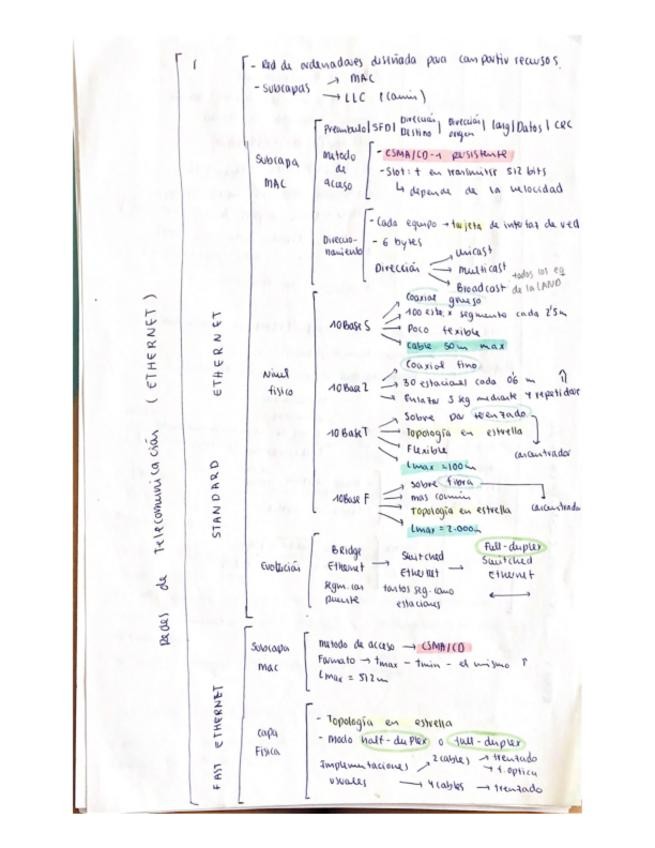 Redes de Telecomunicación (ETHERNET)
STANDARD ETHERNET
- Red de ordenadores diseñada para compartir recursos.
- Subcapas → MAC
→ LLC (común)
Subcapa MAC
Preámbulo | SFD | Dirección Destino | Dirección origen | Long | Datos | CRC
método de acceso
- CSMA/CD-1 persistente
- Slot: t en transmitir 512 bits
↳ depende de la velocidad
Direccionamiento
- Cada equipo → tarjeta de interfaz de red
- 6 bytes
Dirección
unicast
multicast
Broadcast todos los eq de la LAN
Nivel físico
10Base5
Coaxial grueso
100 esta. x segmento cada 2'5m
Poco flexible
cable 50m max
10Base2
Coaxial fino
30 estaciones cada 0'6 m
Enlazar 5 seg mediante 4 repetidore
10BaseT
Sobre par trenzado → concentrador
Topología en estrella
Flexible
Lmax = 100m
10Base F
sobre fibra → concentrado
mas común
Topología en estrella
Lmax = 2.000m
Evolución
Bridge Ethernet → Switched Ethernet → Full-duplex Switched ethernet
Sgm. con puente
tantos seg. como estaciones
FAST ETHERNET
Subcapa mac
metodo de acceso → CSMA/CD
Formato → tmax - tmin - el mismo ↑
Lmax = 512m
capa Física
- Topología en estrella
- modo half-duplex o full-duplex
Implementaciones usuales
2 cables → trenzado
→ f. optica
→ 4 cables → trenzado